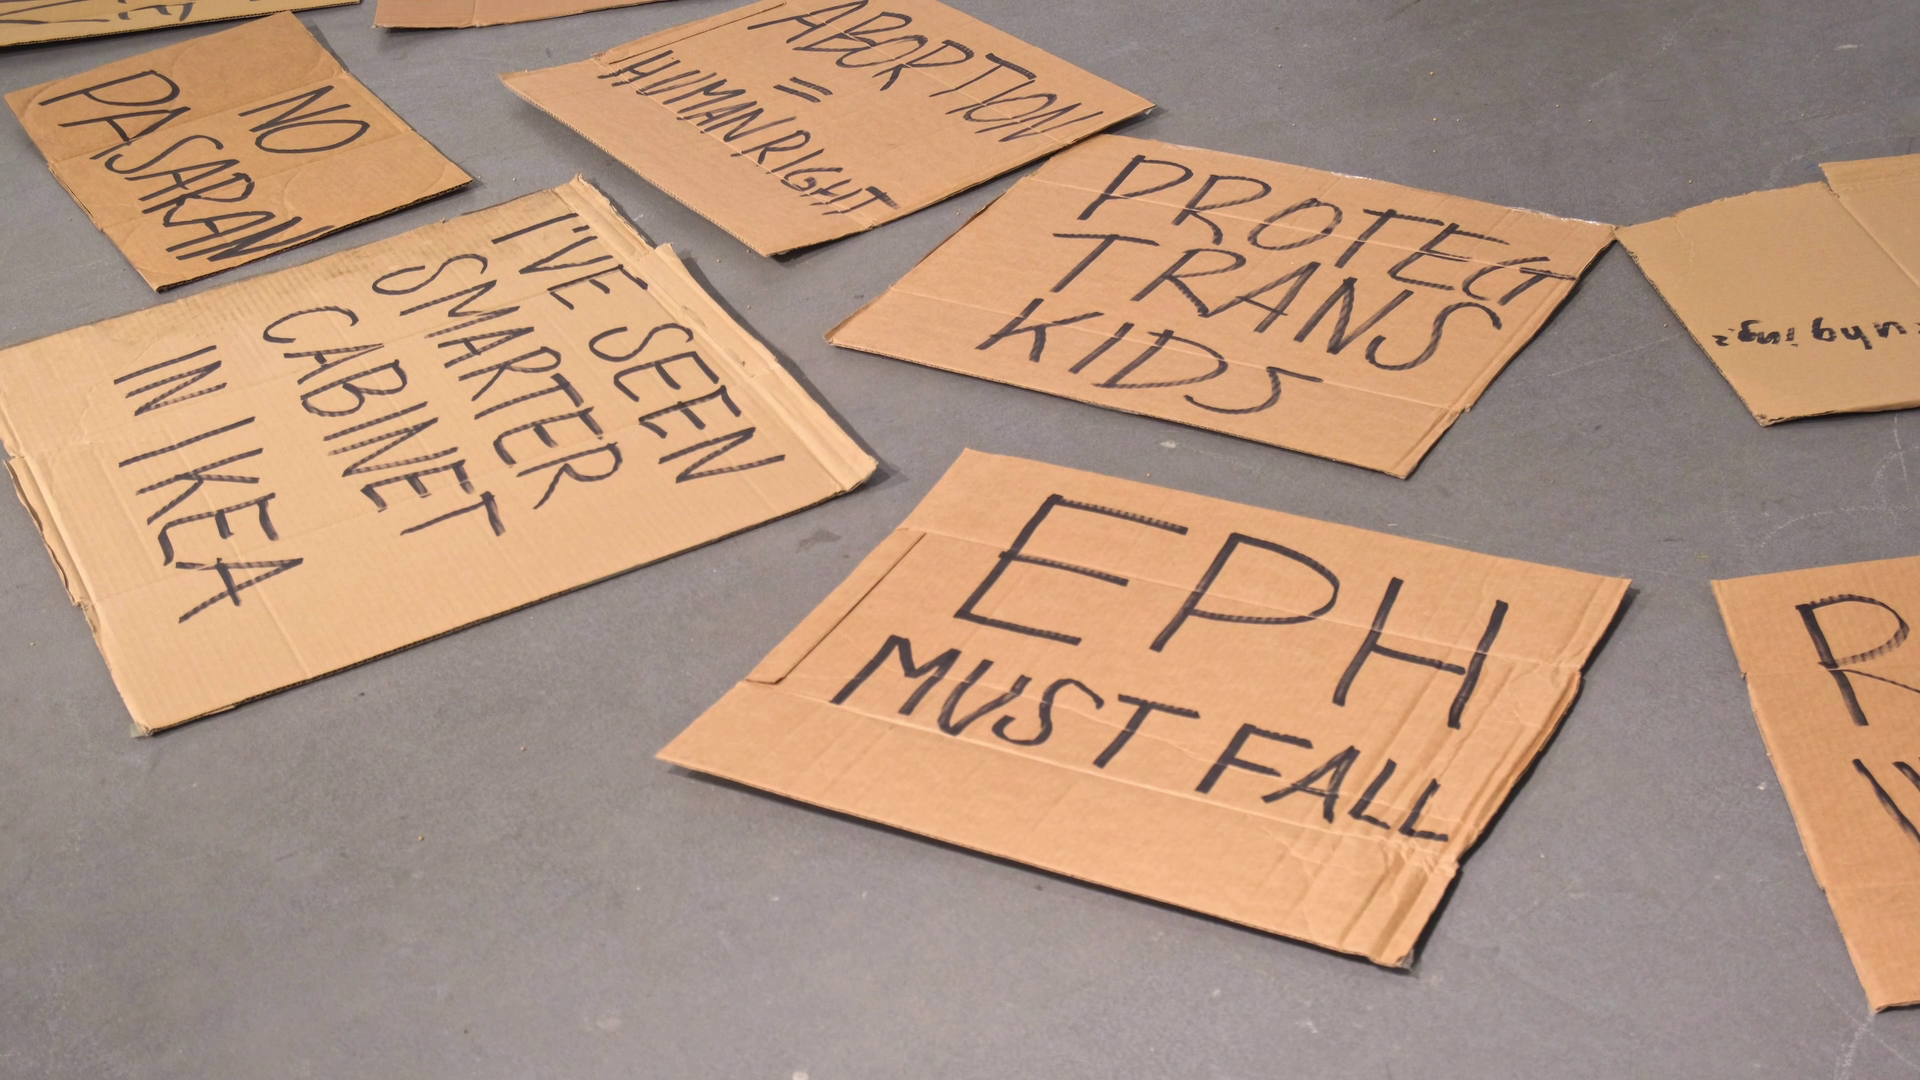 NO
PASARAN
ABORTION
=
HUMAN RIGHT
PROTECT
TRANS
KIDS
I'VE SEEN
SMARTER
CABINET
IN IKEA
EPH
MUST FALL
R